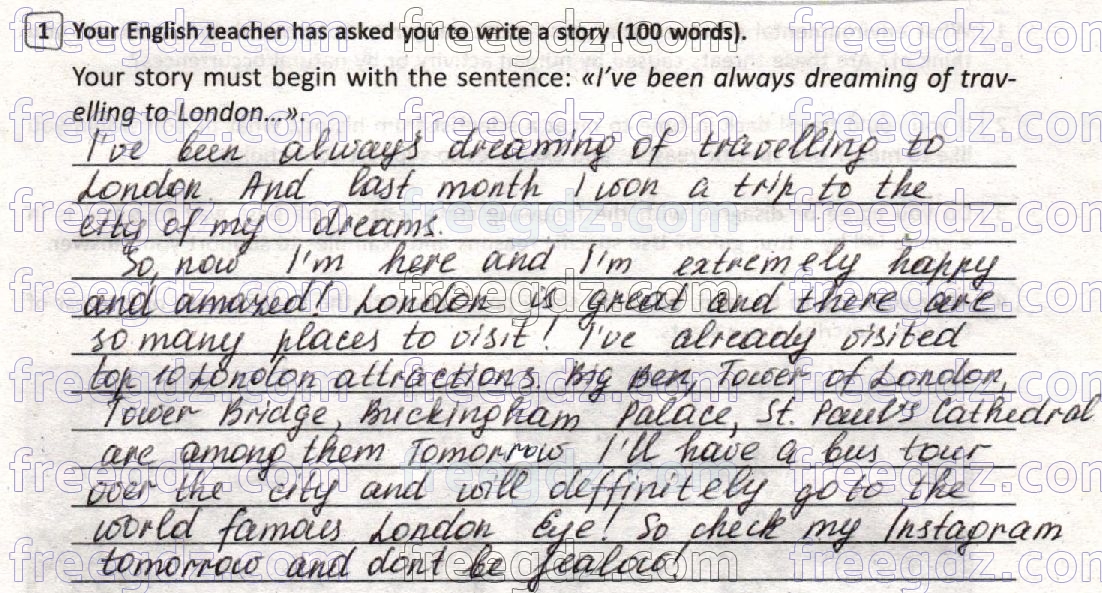 1 Your English teacher has asked you to write a story (100 words).
Your story must begin with the sentence: «I've been always dreaming of trav-
elling to London...».
I've been always dreaming of travelling to
London. And last month I won a trip to the
city of my dreams.
So, now I'm here and I'm extremely happy
and amazed! London is great and there are
so many places to visit! I've already visited
top 10 London attractions. Big Ben, Tower of London,
Tower Bridge, Buckingham Palace, St. Paul's Cathedral
are among them Tomorrow I'll have a bus tour
over the city and will deffinitely go to the
world famous London Eye! So check my Instagram
tomorrow and dont be jealou!
freegdz.com